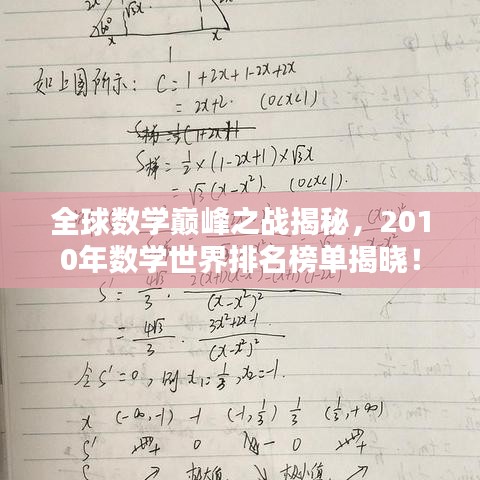 2x √3x
60°
x x
1
如上图所示: C=1+2x+1-2x+2x
=2x+2. (0<x<1)
S梯=½×(1-2x+1)×√3x
=√3(x-x²). (0<x<1).
全球数学巅峰之战揭秘，201
0年数学世界排名榜单揭晓！
S'=4√3/3.
(x-x²)²
=4√3/3 · 3x²+2x-1 / (x-x²)²
令S'=0, 则x₁=⅓, x₂=-1.
x (-∞,-1) -1 (-1,⅓) ⅓ (⅓,+∞)
S' + 0 - 0 +
S ↗ 极大值 ↘ 极小值 ↗